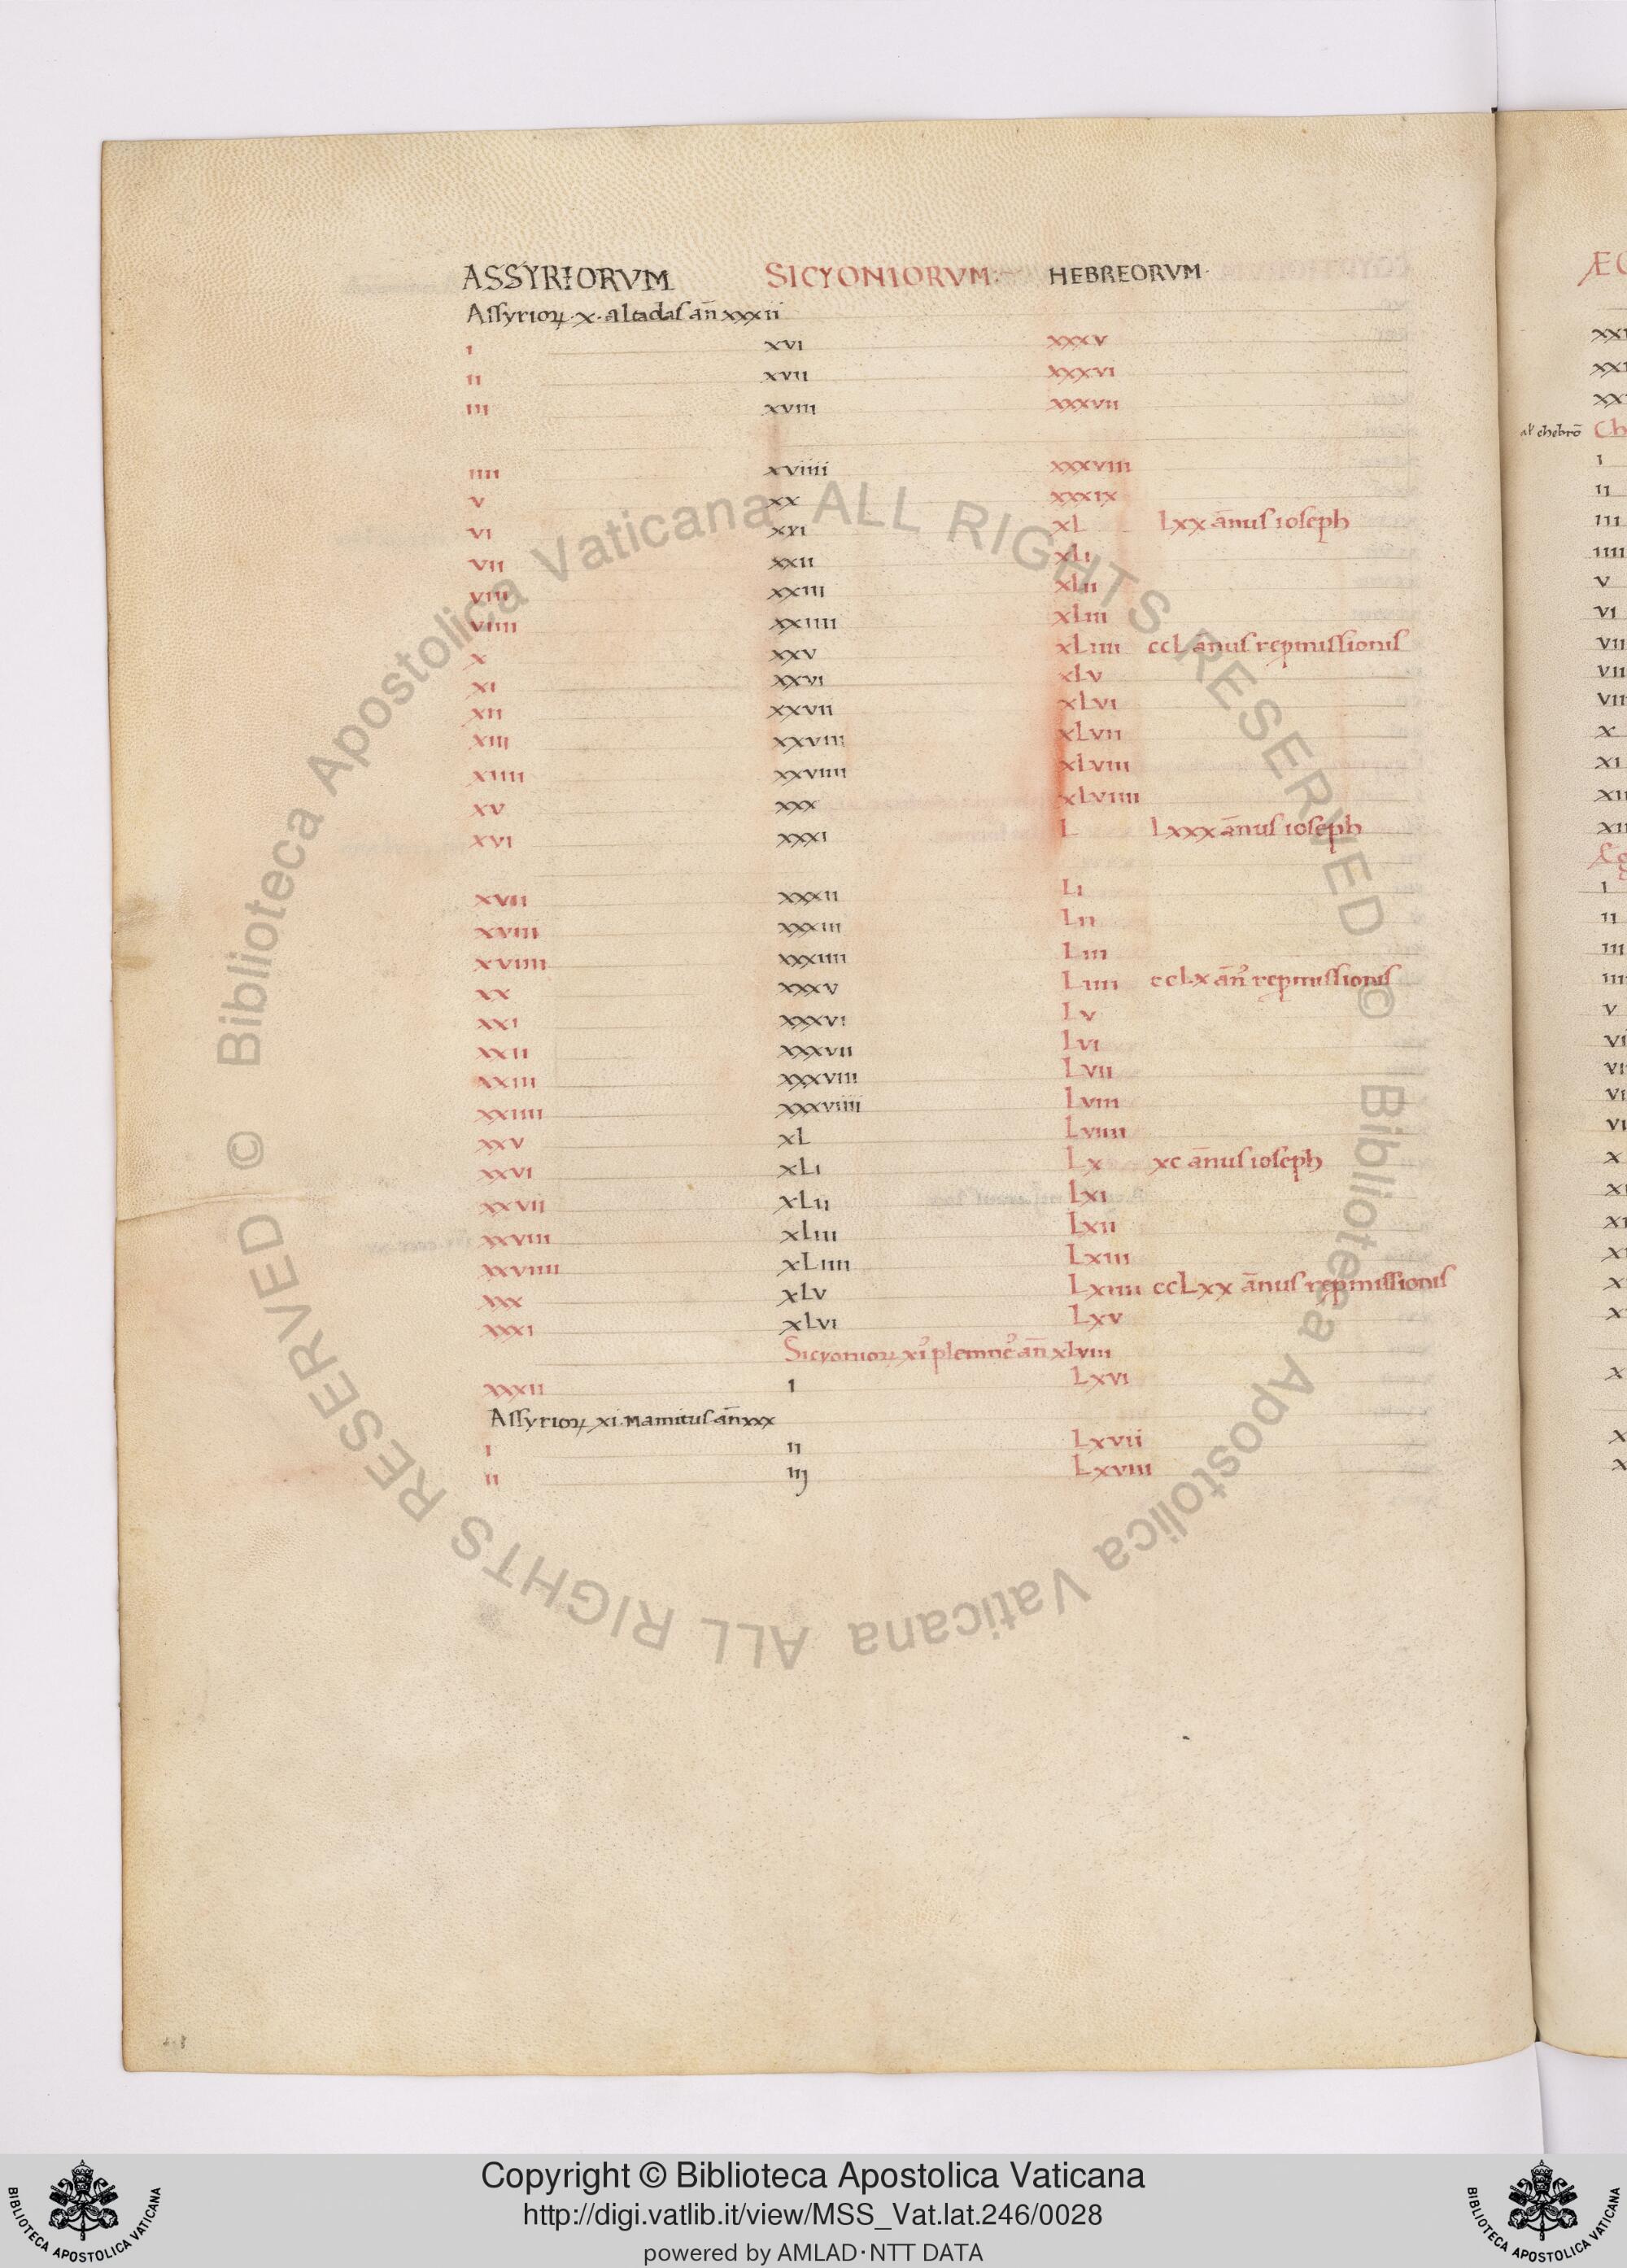 ASSYRIORVM SICYONIORVM: HEBREORVM·
Assyrioꝝ ·x· altadas an̄ xxxii
i xvi xxxv
ii xvii xxxvi
iii xviii xxxvii
iiii xviiii xxxviii
v xx xxxix
vi xxi xL Lxx ānus ioseph
vii xxii xLi
viii xxiii xLii
viiii xxiiii xLiii
x xxv xLiiii ccL anus repmissionis
xi xxvi xLv
xii xxvii xLvi
xiii xxviii xLvii
xiiii xxviiii xLviii
xv xxx xLviiii
xvi xxxi L Lxxx ānus ioseph
xvii xxxii Li
xviii xxxiii Lii
xviiii xxxiiii Liii
xx xxxv Liiii ccLx an̄ꝰ repmissionis
xxi xxxvi Lv
xxii xxxvii Lvi
xxiii xxxviii Lvii
xxiiii xxxviiii Lviii
xxv xL Lviiii
xxvi xLi Lx xc ānus ioseph
xxvii xLii Lxi
xxviii xLiii Lxii
xxviiii xLiiii Lxiii
xxx xLv Lxiiii ccLxx ānus repmissionis
xxxi xLvi Lxv
Sicyonioꝝ xiꝰ plemneꝰ an̄ xlviii
xxxii i Lxvi
Assyrioꝝ xi. mamitus an̄ xxx
i ii Lxvii
ii iij Lxviii
al' chebrō Ch
Copyright © Biblioteca Apostolica Vaticana
http://digi.vatlib.it/view/MSS_Vat.lat.246/0028
powered by AMLAD·NTT DATA
BIBLIOTECA APOSTOLICA VATICANA
BIBLIOTECA APOSTOLICA VATICANA
© Biblioteca Apostolica Vaticana ALL RIGHTS RESERVED
© Biblioteca Apostolica Vaticana ALL RIGHTS RESERVED